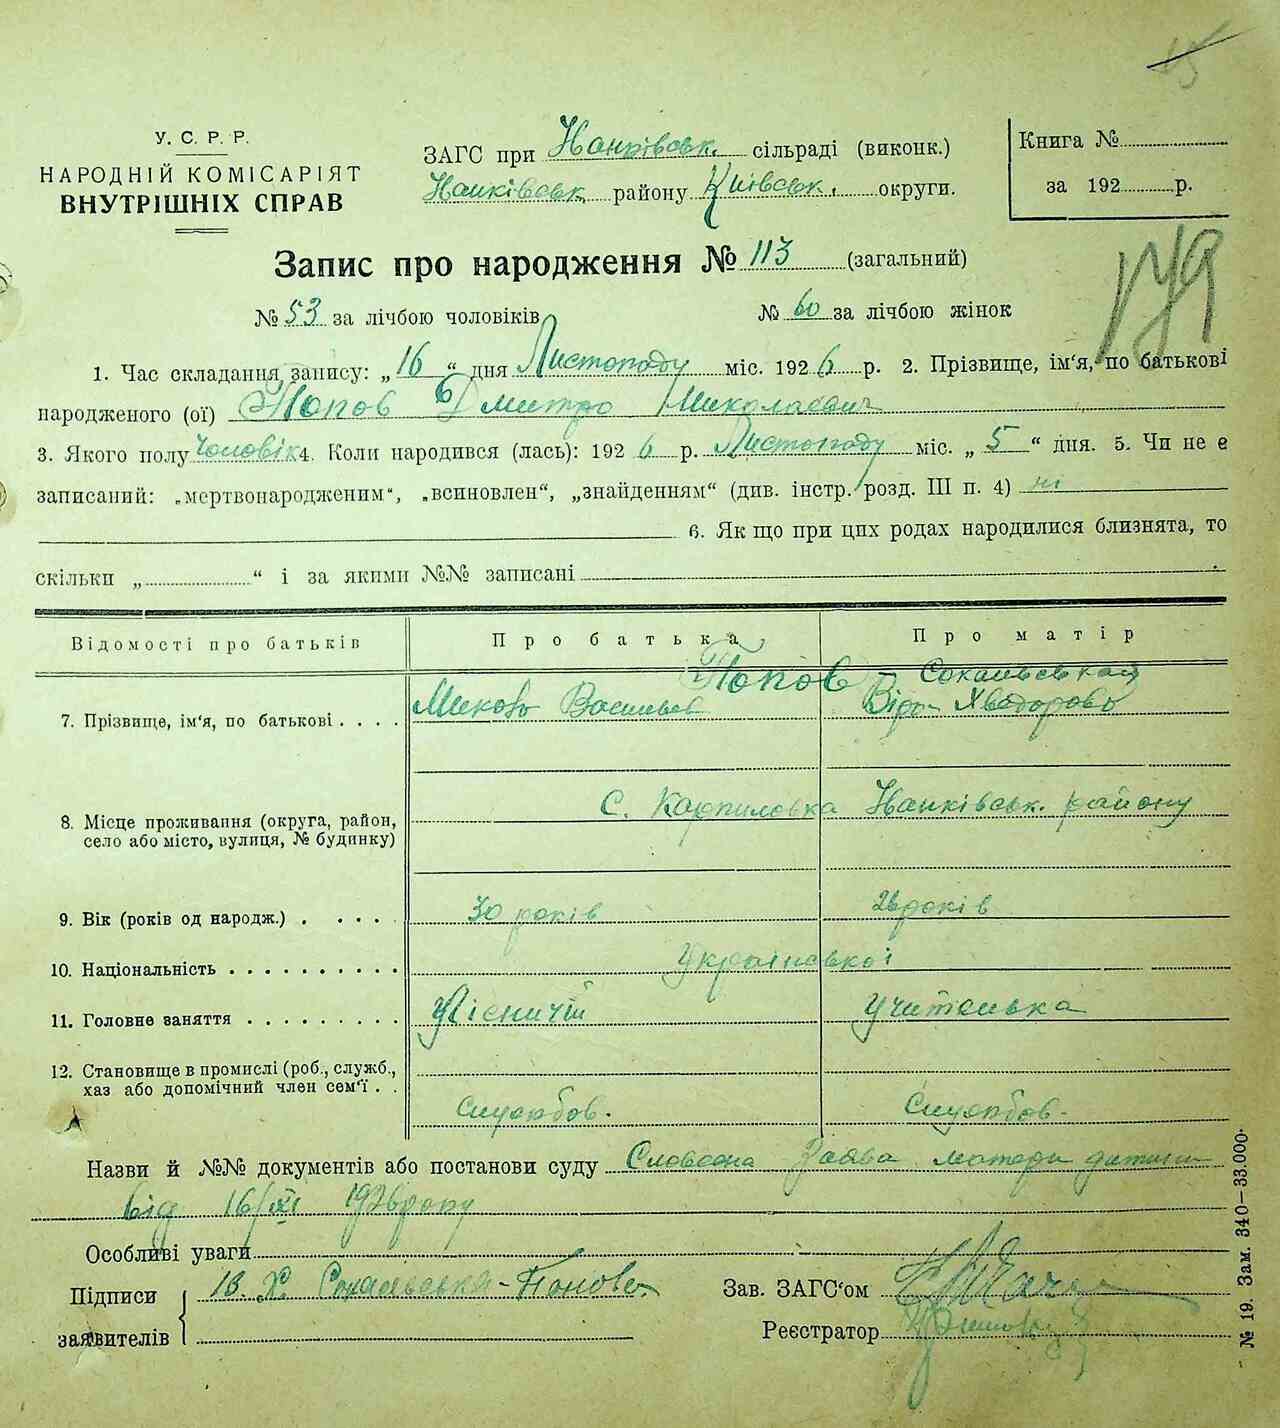 У. С. Р. Р.
НАРОДНІЙ КОМІСАРІЯТ
ВНУТРІШНІХ СПРАВ
ЗАГС при сільраді (виконк.)
району Київськ. округи.
Книга №
за 192 р.
Запис про народження № 113 (загальний)
№ 53 за лічбою чоловіків № 60 за лічбою жінок
179
1. Час складання запису: „ 16 “ дня Листопаду міс. 192 6 р. 2. Прізвище, ім‘я, по батькові
народженого (ої) Попов Дмитро Миколаевич
3. Якого полу Чоловік 4. Коли народився (лась): 192 6 р. Листопаду міс. „ 5 “ дня. 5. Чи не є
записаний: „мертвонародженим“, „всиновлен“, „знайденням“ (див. інстр. розд. III п. 4) ні
6. Як що при цих родах народилися близнята, то
скільки „ “ і за якими №№ записані
Відомості про батьків Про батька Про матір
7. Прізвище, ім‘я, по батькові Попов – Сокальська
Микола Васильев Віра Хведорово
8. Місце проживання (округа, район,
село або місто, вулиця, № будинку) С. Карпиловка району
9. Вік (років од народж.) 30 років 26 років
10. Національність Української
11. Головне заняття Лісничій Учителька
12. Становище в промислі (роб., служб.,
хаз або допомічний член сем‘ї
Службов. Службов.
Назви й №№ документів або постанови суду Словесна Заява матери дитини
від 16/XI 1926 року
Особливі уваги
Підписи
заявителів
В. Х. Сокальська-Попова
Зав. ЗАГС‘ом
Реєстратор
№ 19. Зам. 340—33.000.